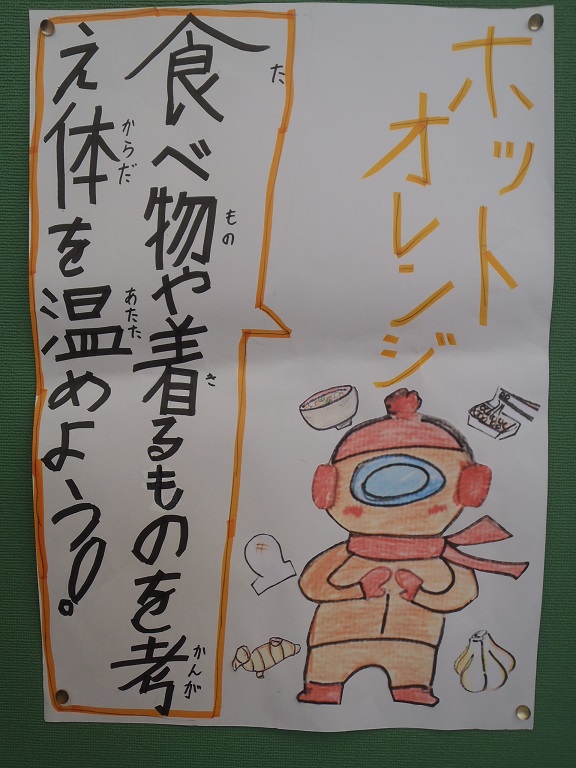 ホット
オレンジ
食べ物や着るものを考
え体を温めよう!
た
もの
き
かんが
からだ
あたた